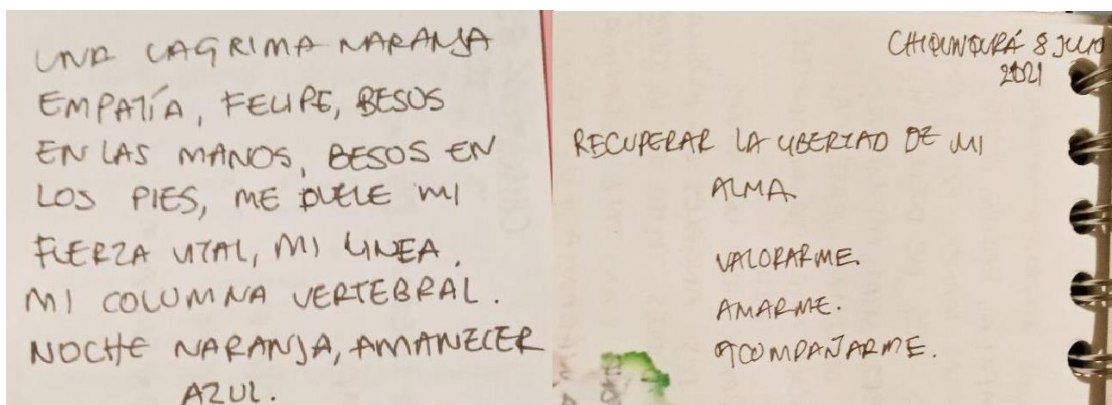 UNA LAGRIMA NARANJA
EMPATÍA, FELIPE, BESOS
EN LAS MANOS, BESOS EN
LOS PIES, ME DUELE MI
FUERZA VITAL, MI LINEA,
MI COLUMNA VERTEBRAL.
NOCHE NARANJA, AMANECER
AZUL.
CHIQUINQUIRÁ 8 JULIO
2021
RECUPERAR LA LIBERTAD DE MI
ALMA
VALORARME.
AMARME.
ACOMPAÑARME.